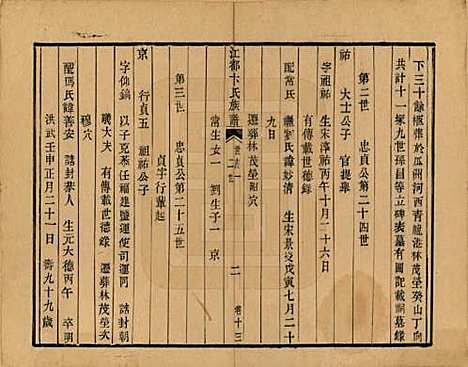 下三十餘樞葬於瓜州河西青龍港林茂塋癸山丁向
共計十一冢九世孫昌等立碑表墓有圖記載祠墓錄
第二世 忠貞公第二十四世
祐 大士公子 官提舉
字祖祐 生宋淳祐丙午十月二十六日
有傳載世德錄
配常氏 繼劉氏諱妙清 生宋景炎戊寅七月二十
九日
遷葬林茂塋附穴
常生女一 劉生子一 京
江都卞氏族譜
二
卷十三
第三世 忠貞公第二十五世
貞字行輩起
京 行貞五 祖祐公子
字仰鎬 以子克燕任福建鹽運使司運同 誥封朝
議大夫 有傳載世德錄 遷葬林茂塋次
穆穴
配馮氏諱善安 誥封恭人 生元大德丙午 卒明
洪武壬申正月二十一日 壽九十九歲